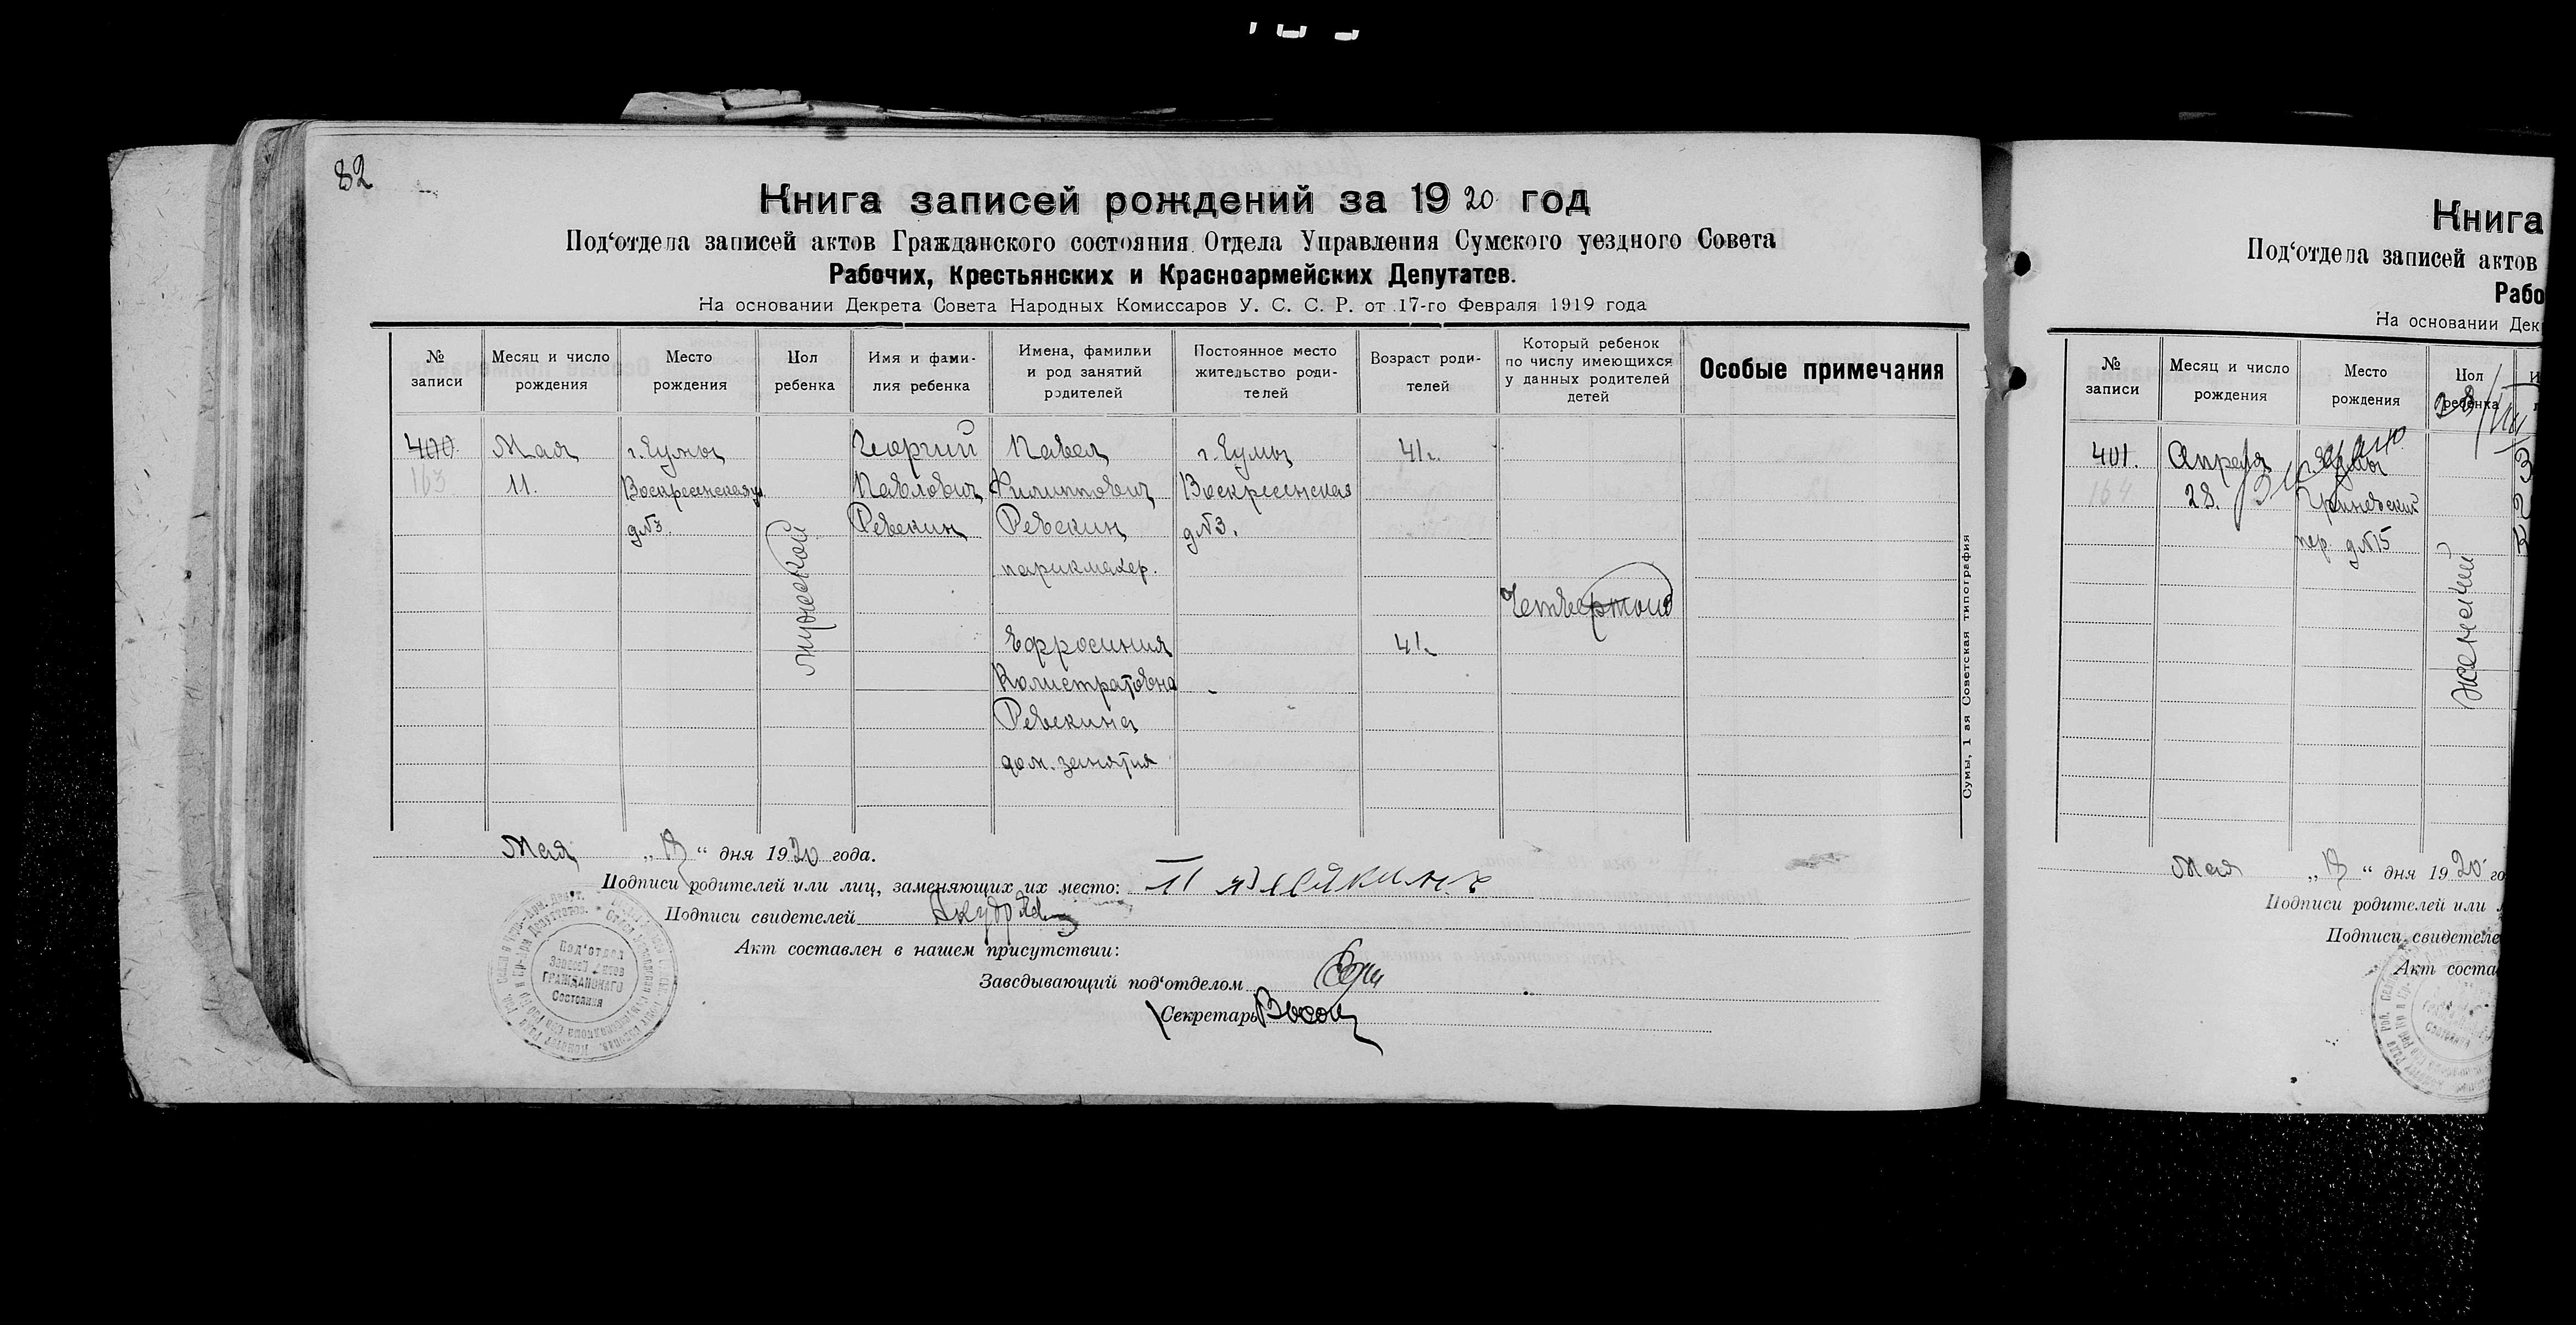 82
Книга записей рождений за 1920 год
Под‘отдела записей актов Гражданского состояния Отдела Управления Сумского уездного Совета
Рабочих, Крестьянских и Красноармейских Депутатов.
На основании Декрета Совета Народных Комиссаров У. С. С. Р. от 17-го Февраля 1919 года
№ записи
Месяц и число рождения
Место рождения
Пол ребенка
Имя и фами-
лия ребенка
Имена, фамилии
и род занятий
родителей
Постоянное место
жительство роди-
телей
Возраст роди-
телей
Который ребенок
по числу имеющихся
у данных родителей
детей
Особые примечания
400.
163
Мая
11.
г. Сумы
Воскресенская ул
д№3.
мужеской
Георгий
Павлович
Ревекин
Павел
Филиппович
Ревекин
парикмахер.
Ефросиния
Калистратовна
Ревекина
дом. занятия
г. Сумы
Воскресенская
д№3.
41 г.
41 г.
Четвертый
Сумы, 1 ая Советская типография
Мая „ “ дня 1920 года.
Подписи родителей или лиц, заменяющих их место:
Подписи свидетелей
Акт составлен в нашем присутствии:
Заведывающий под‘отделом
Секретарь
Под‘отдел
Записей Актов
ГРАЖДАНСКАГО
Состояния
Книга
Под‘отдела записей актов
Рабо
На основании Дек
№ записи
Месяц и число рождения
Место рождения
Пол ребенка
401.
164
Апреля
28.
г. Сумы
пер. д№15
женский
Мая „ “ дня 1920 го
Подписи родителей или
Подписи свидетеле
Акт соста